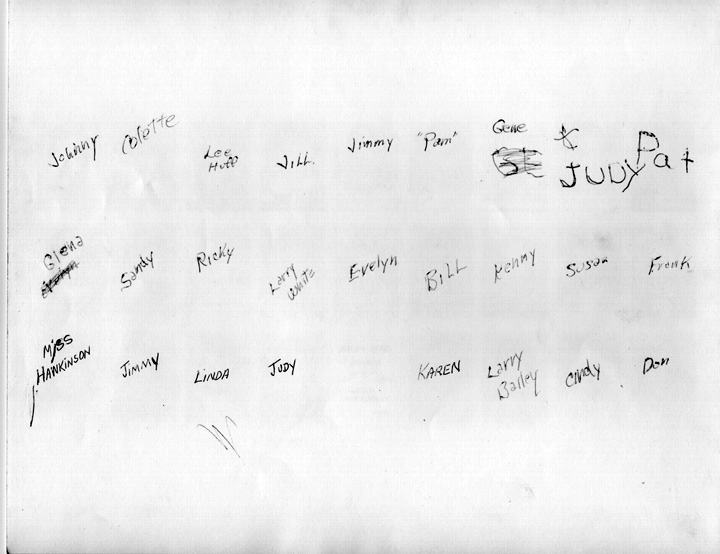 Johnny Colette Lee Huff Jill. Jimmy "Pam" Gene & JUDY Pat
Glena Sandy Ricky Larry White Evelyn BiLL Kenny Susan Frank
Miss HAWKINSON JIMMY LINDA JUDY KAREN Larry Bailey Cindy Don